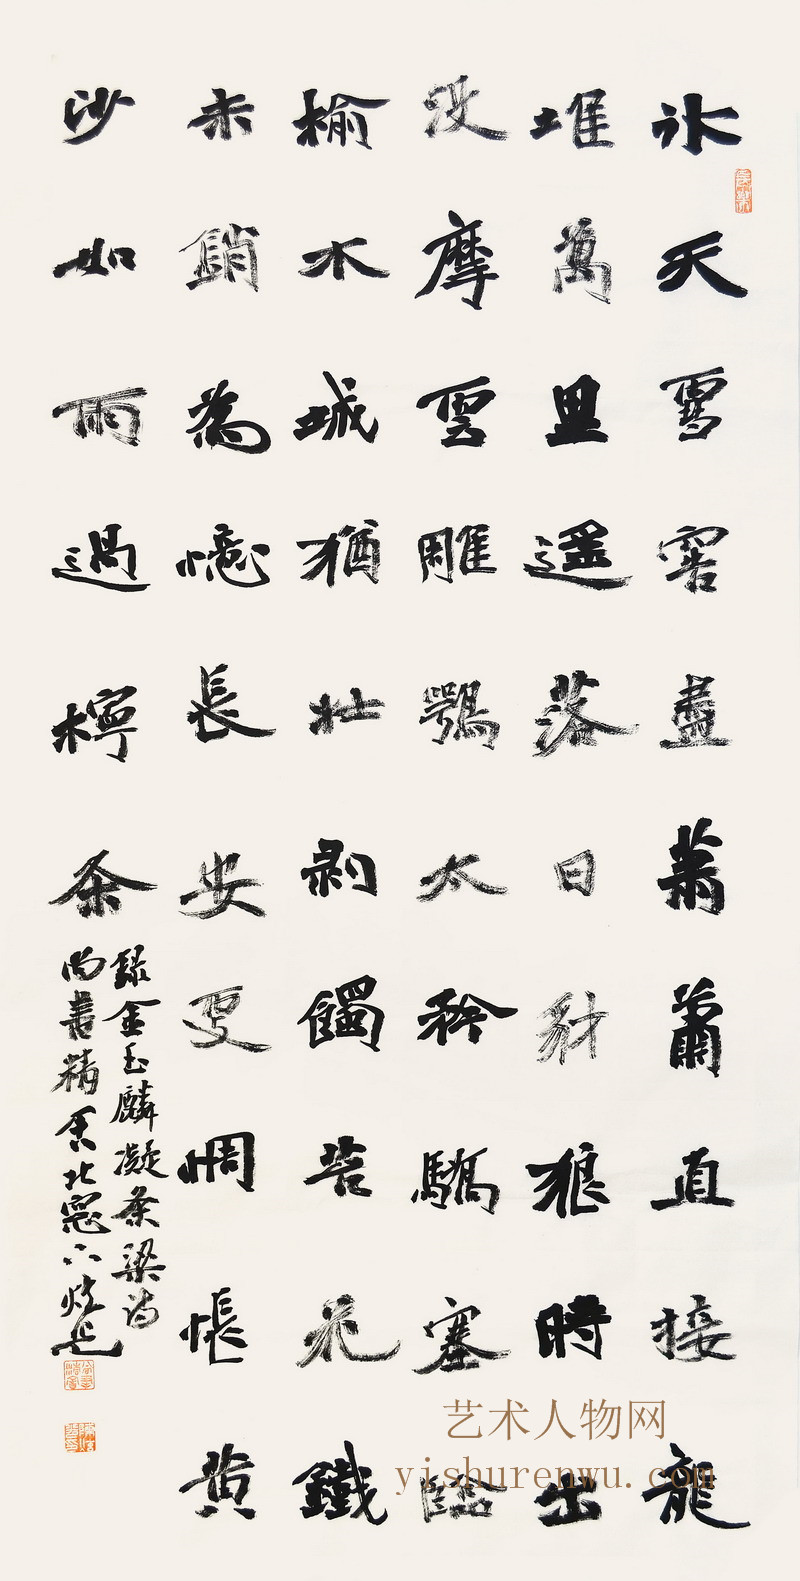 氷天雪窖盡蕭蕭直接龍
堆萬里遥落日豺狼時出
没摩雲雕鶚太矜驕塞臨
榆木城猶壯剥蝕苔花鐵
未銷為憶長安更惆悵黄
沙如雨過檸条
錄金玉麟凝条梁詩
尚善精舍北窗
艺术人物网
yishurenwu.com